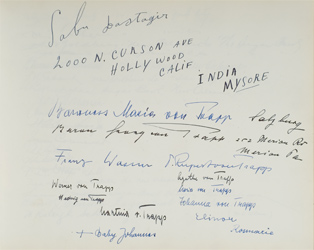 Sabu Dastagir
2000 N. CURSON AVE
HOLLYWOOD
CALIF.
INDIA
MYSORE
Baroness Maria von Trapp Salzburg
Baron Georg von Trapp Merion Rd
Merion Pa
Franz Wasner Rupert von Trapp
Werner von Trapp Agathe von Trapp
Hedwig von Trapp Maria von Trapp
Martina v. Trapp Johanna von Trapp
Elinor
Rosmarie
+ Baby Johannes